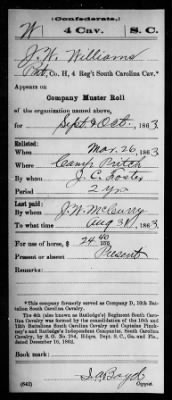 (Confederate.)
W 4 Cav. S. C.
J. W. Williams
Pvt, Co. H, 4 Reg't South Carolina Cav.*
Appears on
Company Muster Roll
of the organization named above,
for Sept & Oct, 1863
Enlisted:
When Mar. 26, 1863
Where Camp Pritch
By whom J. C. Foster
Period 2 yrs
Last paid:
By whom J. W. McCurry
To what time Aug 31, 1863
For use of horse, $ 24 40
Present or absent Present
Remarks:
*This company was formerly known as Company D, 10th Battalion South Carolina Cavalry.
The 4th (also known as Rutledge's) Regiment South Carolina
Cavalry was formed by the consolidation of the 10th and
12th Battalions South Carolina Cavalry and Captains Pinckney's
and Rutledge's Independent Companies, South Carolina
Cavalry, by S. O. No. 254, Hdqrs. Dept. S. C., Ga. and Fla.,
dated December 16, 1862.
Book mark:
(642) Boyd
Copyist.